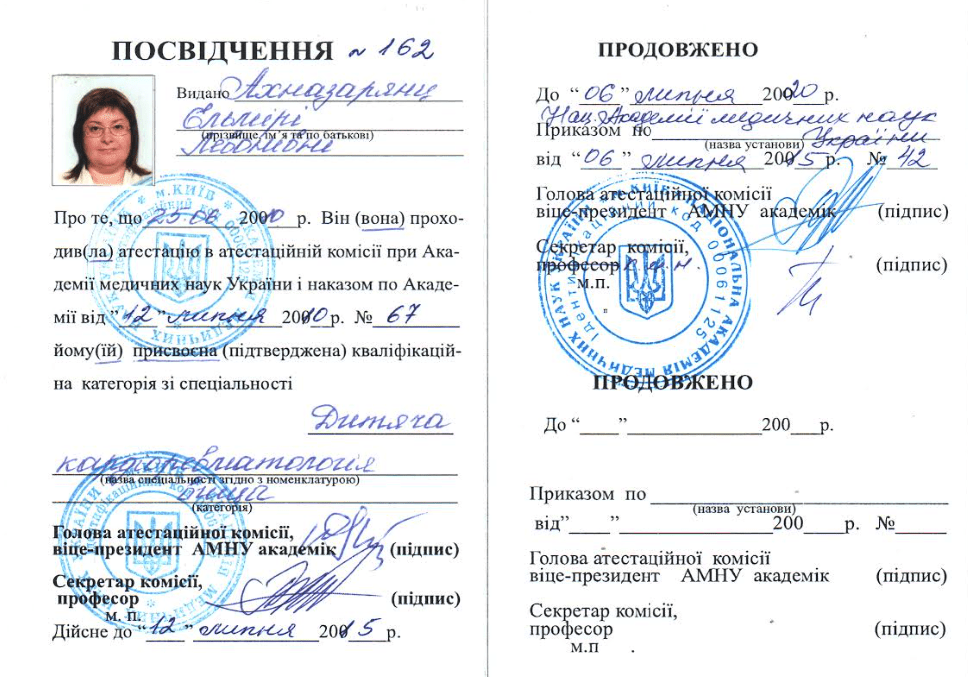 ПОСВІДЧЕННЯ № 162
Видано Ахназарянц
Ельмірі
(прізвище, ім'я та по батькові)
Левонівні
Про те, що 25.06 20010 р. Він (вона) прохо-
див(ла) атестацію в атестаційній комісії при Ака-
демії медичних наук України і наказом по Акаде-
мії від " 12 " липня 20010 р. № 67
йому(їй) присвоєна (підтверджена) кваліфікацій-
на категорія зі спеціальності
Дитяча
кардіоревматологія
(назва спеціальності згідно з номенклатурою)
вища
(категорія)
Голова атестаційної комісії,
віце-президент АМНУ академік (підпис)
Секретар комісії,
професор (підпис)
м. п.
Дійсне до “ 12 ” липня 20015 р.
ПРОДОВЖЕНО
До “ 06 ” липня 20020 р.
Нац. Академії медичних наук
Приказом по
(назва установи) України
від “ 06 ” липня 20015 р. № 42
Голова атестаційної комісії
віце-президент АМНУ академік (підпис)
Секретар комісії,
професор к.м.н. (підпис)
м.п.
НАЦІОНАЛЬНА АКАДЕМІЯ МЕДИЧНИХ НАУК УКРАЇНИ * м.КИЇВ *
Ідентифікаційний код 00061125
ПРОДОВЖЕНО
До “____”______________200___р.
Приказом по ______________
(назва установи)
від”____ ”______________200___р. №_____
Голова атестаційної комісії
віце-президент АМНУ академік (підпис)
Секретар комісії,
професор (підпис)
м.п .